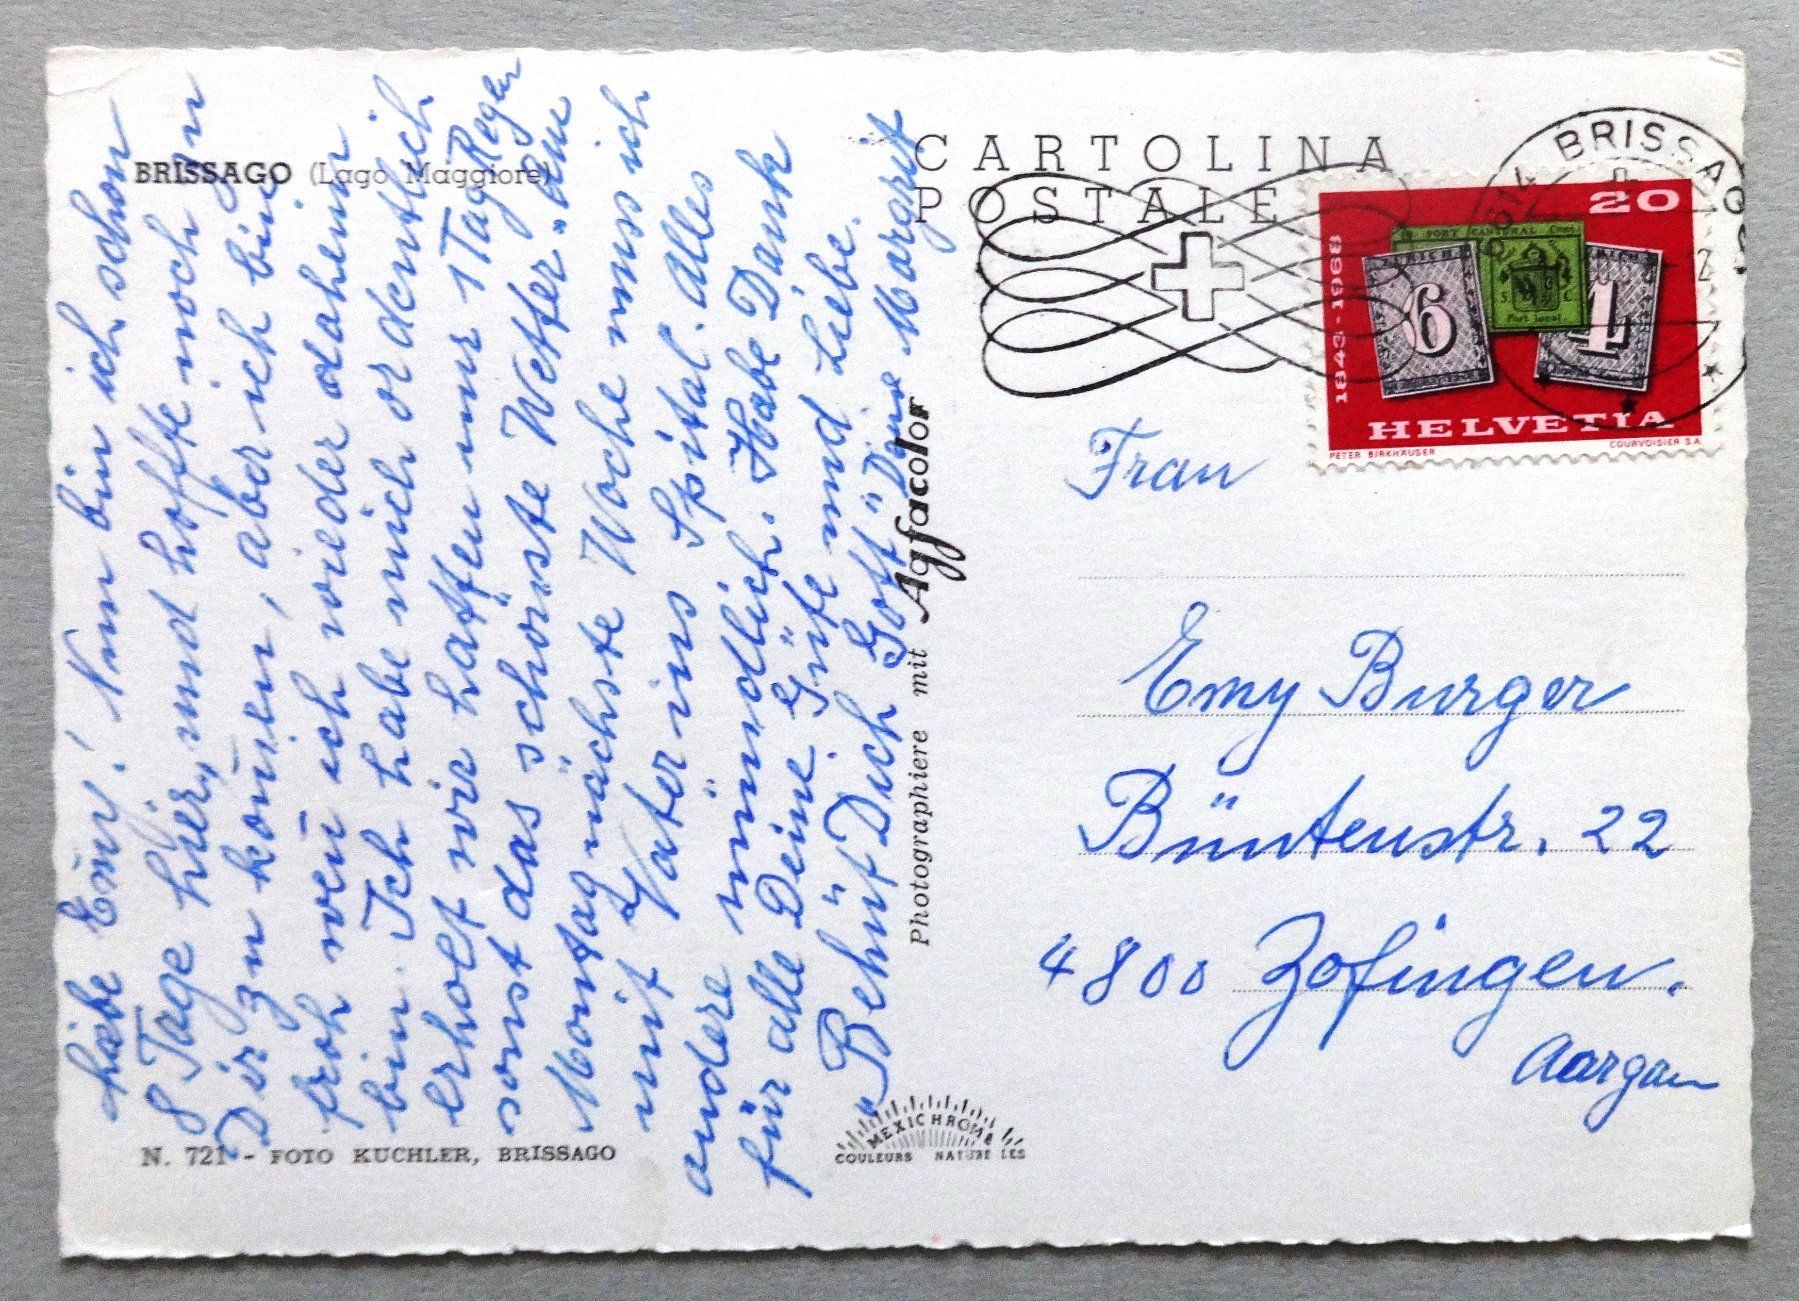 BRISSAGO (Lago Maggiore)
Liebe Emy! Nun bin ich schon
8 Tage hier, und hoffe noch gern
Dir zu kom̄en, aber ich bin
froh wen̄ ich wieder daheim
bin. Ich habe mich ordentlich
erholt wir hatten nur 1 Tag Regen
sonst das schönste Wetter. Am
Montag nächste Woche muss ich
mit Vater ins Spital. Alles
andere mündlich. Habe Dank
für alle Deine Güte und Liebe.
"Behüt Dich Gott" Deine Margrit
N. 721 - FOTO KUCHLER, BRISSAGO
Photographiere mit Agfacolor
MEXICHROME
COULEURS NATURELLES
CARTOLINA
POSTALE
6614 BRISSAGO
20
1843-1968
ZURICH
6
PORT CANTONAL
Port local
4
HELVETIA
PETER BIRKHÄUSER
COURVOISIER S.A.
Frau
Emy Burger
Büntenstr. 22
4800 Zofingen.
Aargau